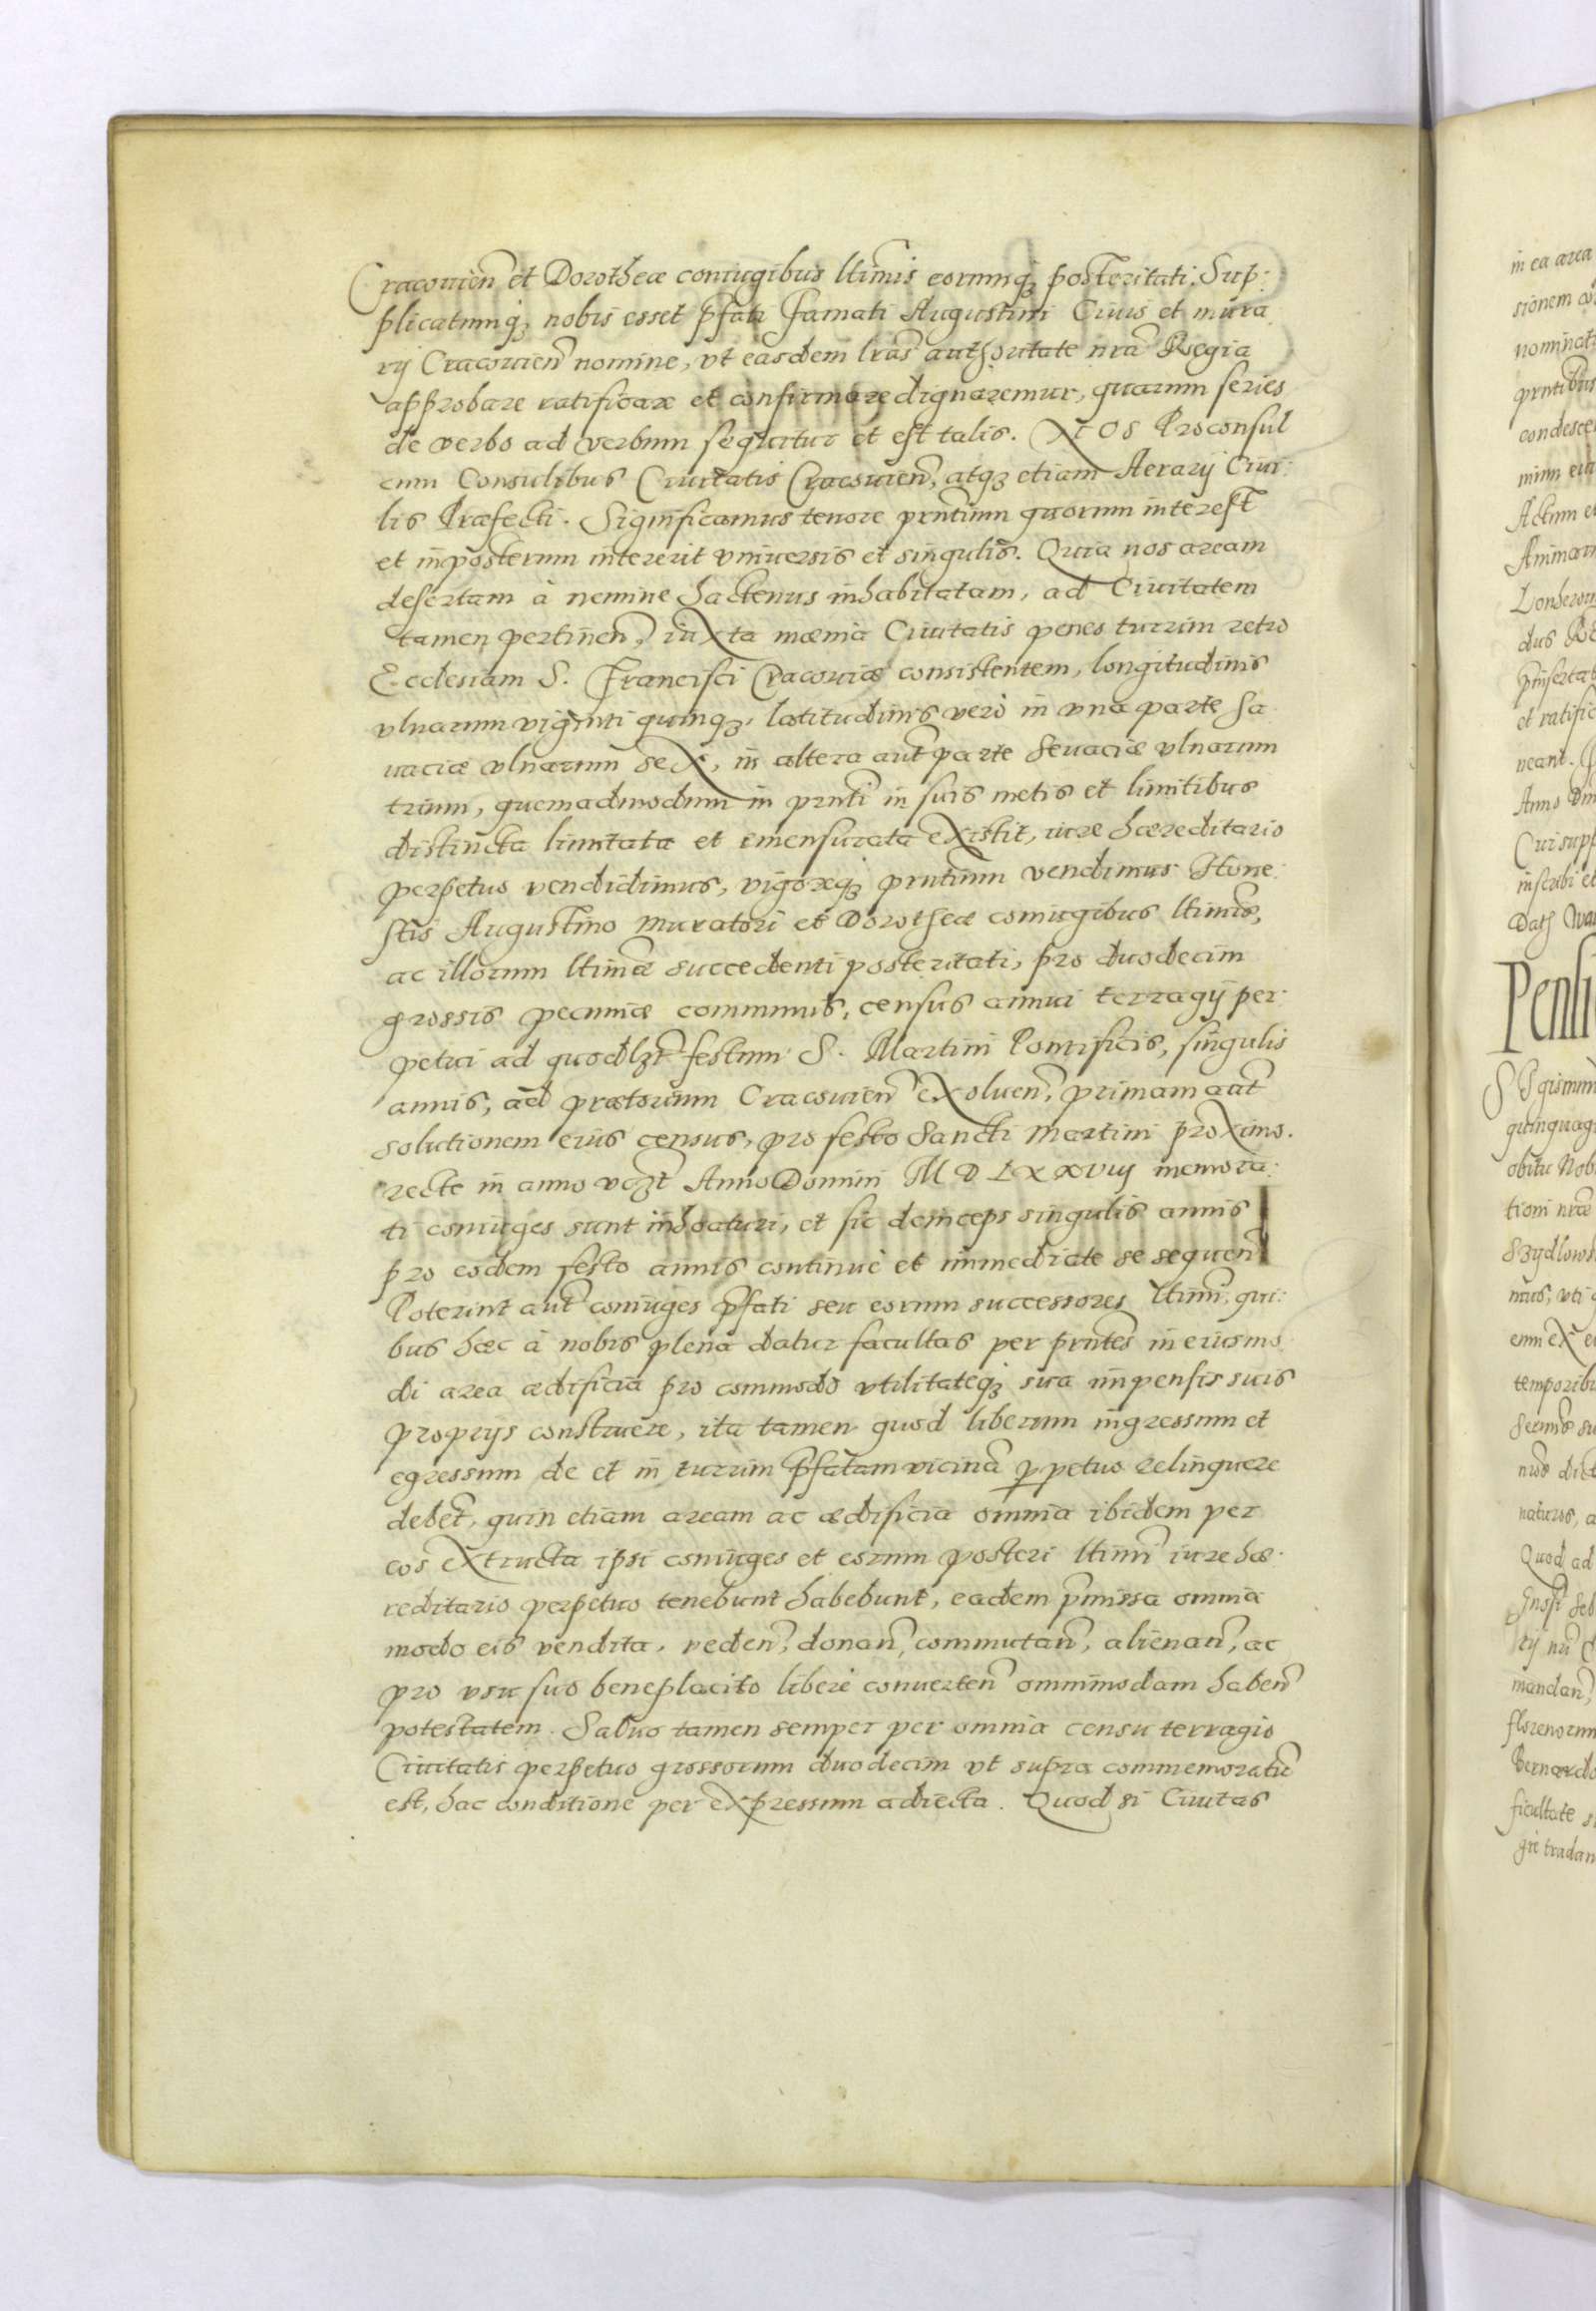 Cracouien̄ et Dorotheæ coniugibus ltimis eorumq₃ posteritati. Sup:
plicatumq₃ nobis esset p̄fati famati Augustini Ciuis et mura
rij Cracouien̄ nomine, vt easdem lrās authoritate nrā Regia
approbare ratificare et confirmare dignaremur, quarum series
de verbo ad verbum sequitur et est talis. Nos Proconsul
cum Consulibus Ciuitatis Cracouien̄, atq₃ etiam Aerarij Ciui:
lis Præfecti. Significamus tenore prntium quorum interest
et inposterum intererit vniuersis et singulis. Quia nos aream
desertam à nemine hactenus inhabitatam, ad Ciuitatem
tamen pertinen̄, iuxta mœnia Ciuitatis penes turrim retro
Ecclesiam S. Francisci Cracouiæ consistentem, longitudinis
vlnarum viginti quinq₃, latitudinis verò in vna parte sa
uaciæ vlnarum sex, in altera aut̄ parte seuaciæ vlnarum
trium, quemadmodum in prnti in suis metis et limitibus
distincta limitata et emensurata existit, iure hæreditario
perpetuo vendidimus, vigoreq₃ prntium vendimus Hone:
stis Augustino Muratori et Dorotheæ coniugibus ltimis,
ac illorum ltimæ succedenti posteritati, pro duodecim
grossis pecuniæ communis, census annui terragij per:
petui ad quodlz̄t festum S. Martini Pontificis, singulis
annis, ad prætorium Cracouien̄ exoluen̄, primam aut̄
solutionem eius census, pro festo Sancti Martini proximo.
recte in anno vez̄t Anno Domini M D LXXVIIJ memora:
ti coniuges sunt inhoaturi, et sic deinceps singulis annis
pro eodem festo annis continuè et immediate se sequen̄
Poterint aut̄ coniuges p̄fati seu eorum successores ltimi, qui:
bus hæc à nobis plena datur facultas per prntes in eiusmo
di area ædificia pro commodo vtilitateq₃ sua impensis suis
proprijs construere, ita tamen quod liberum ingressum et
egressum de et in turrim p̄fatam vicinā ꝑpetuo relinquere
debet̄, quin etiam aream ac ædificia omnia ibidem per
eos extructa ipsi coniuges et eorum posteri ltimi iure hæ:
reditario perpetuo tenebunt habebunt, eadem p̄missa omnia
modo eis vendita, veden̄, donan̄, commutan̄, alienan̄, ac
pro vsu suo beneplacito liberè conuerten̄ ommimodam haben̄
potestatem. Saluo tamen semper per omnia censu terragio
Ciuitatis perpetuo grossorum duodecim vt supra commemoratū
est, hac conditione per expressum adiecta. Quod si Ciuitas